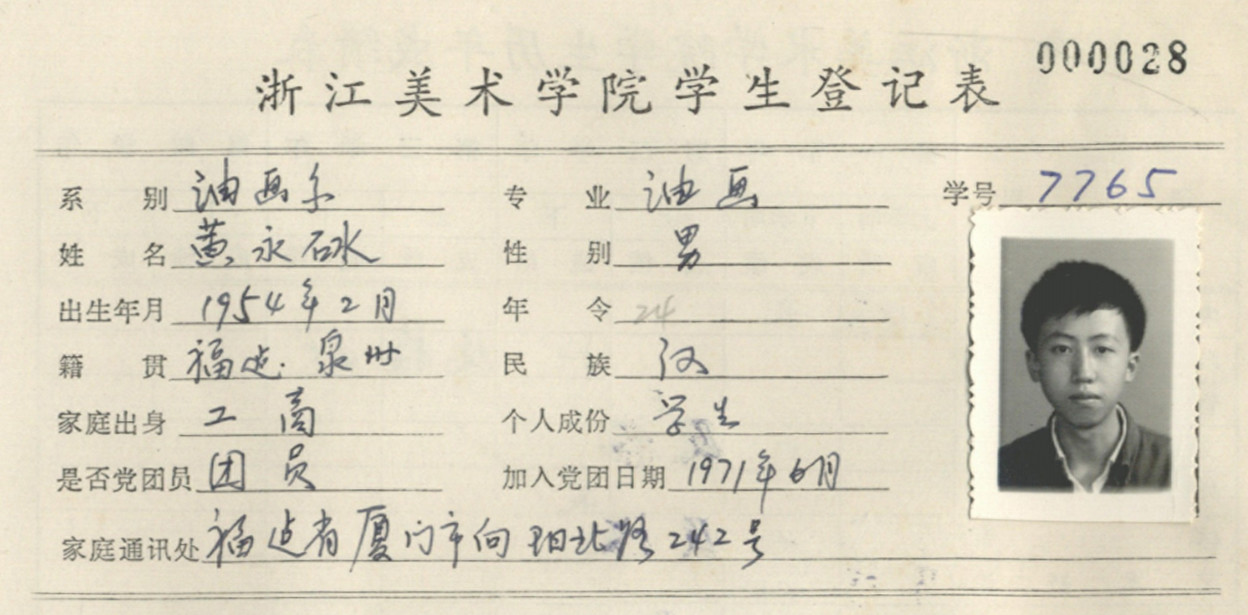 000028
浙江美术学院学生登记表
系别 油画系 专业 油画 学号 7765
姓名 黄永砅 性别 男
出生年月 1954年2月 年令 24
籍贯 福建.泉州 民族 汉
家庭出身 工商 个人成份 学生
是否党团员 团员 加入党团日期 1971年6月
家庭通讯处 福建省厦门市向阳北路242号